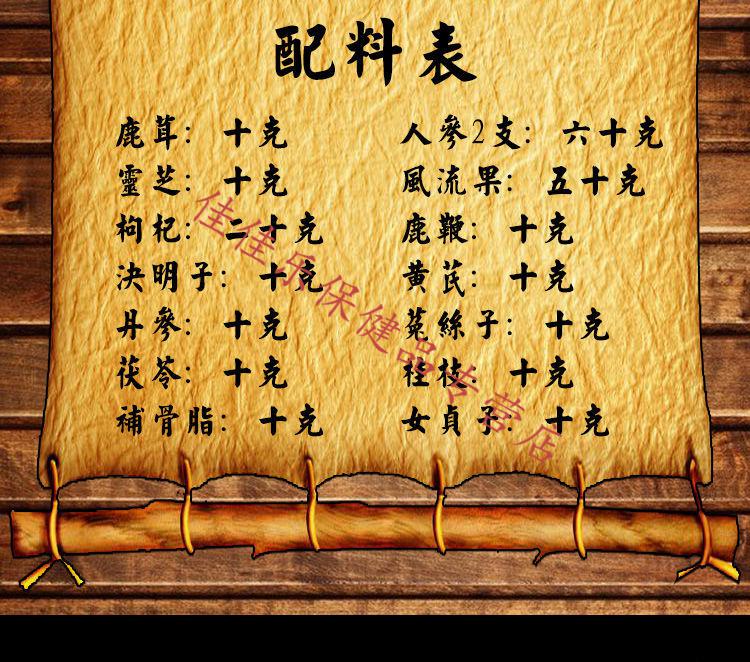 配料表
鹿茸： 十克
靈芝： 十克
枸杞： 二十克
決明子： 十克
丹參： 十克
茯苓： 十克
補骨脂： 十克
人參2支： 六十克
風流果： 五十克
鹿鞭： 十克
黄芪： 十克
菟絲子： 十克
桂枝： 十克
女貞子： 十克
佳佳乐保健品专营店